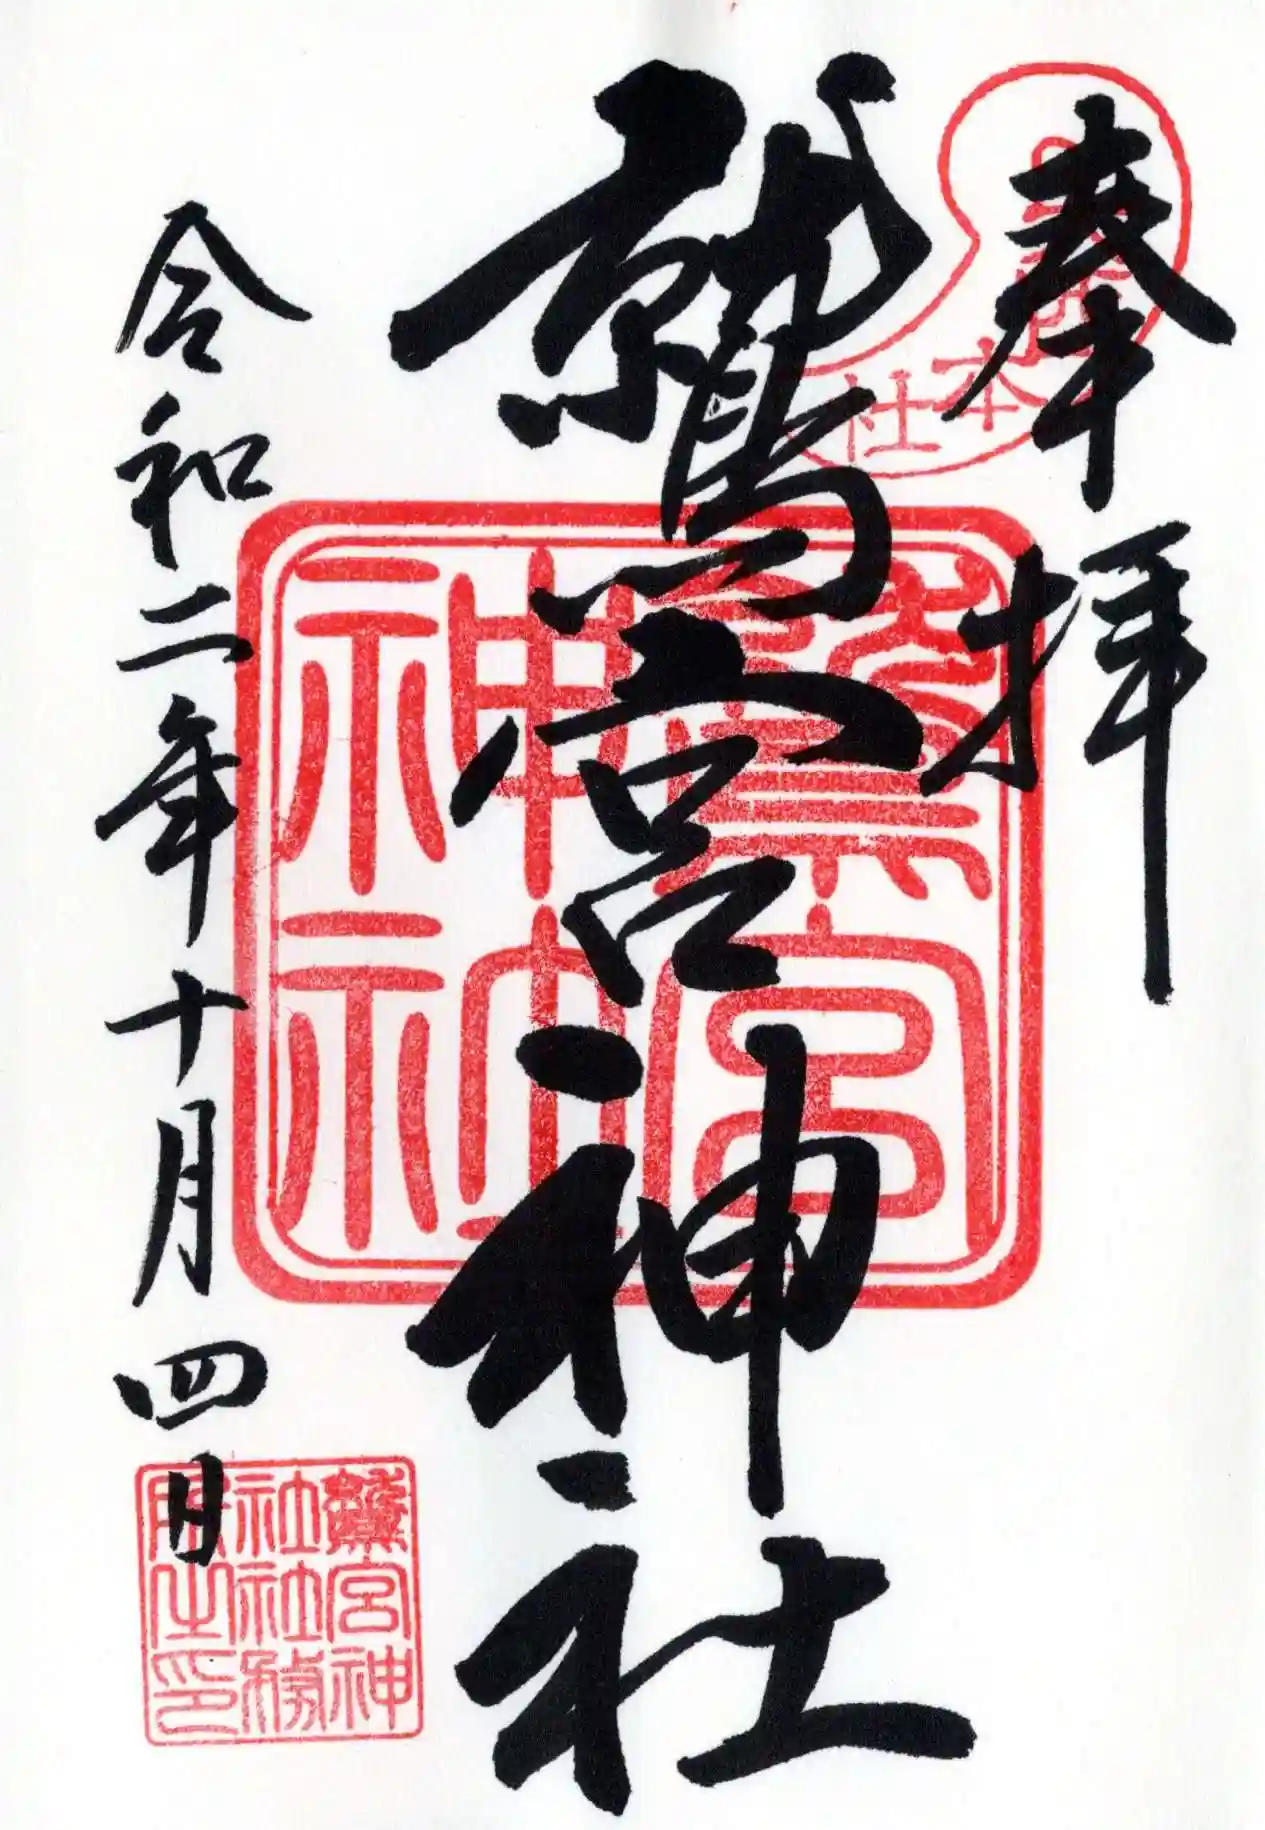 奉拝
本社
鷲宮神社
鷲宮神社
令和二年十月四日
鷲宮神
社社務
所之印